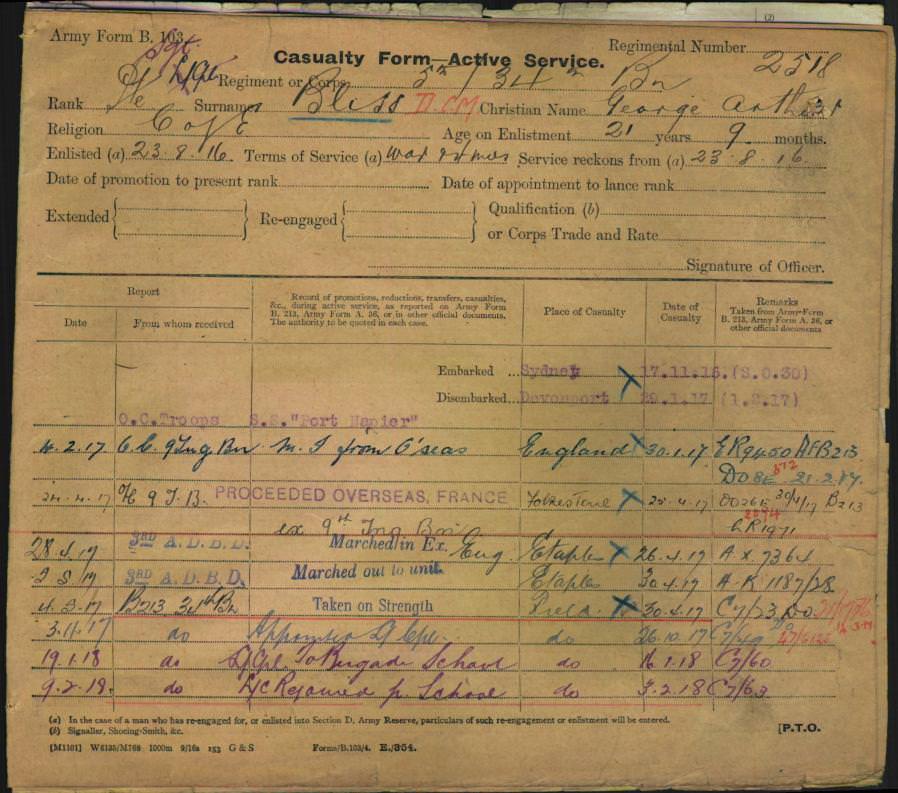 (2)
Army Form B. 103.
Sgt.
Casualty Form—Active Service.
Regimental Number 2518
Pte L/Cpl Regiment or Corps 5th / 34th Bn
Rank Surname Bliss D.C.M Christian Name George Arthur
Religion C of E Age on Enlistment 21 years 9 months.
Enlisted (a) 23.8.16. Terms of Service (a) Service reckons from (a) 23.8.16
Date of promotion to present rank Date of appointment to lance rank
Extended Re-engaged Qualification (b)
or Corps Trade and Rate
Signature of Officer.
Report
Date From whom received
Record of promotions, reductions, transfers, casualties, &c., during active service, as reported on Army Form B. 213, Army Form A. 36, or in other official documents. The authority to be quoted in each case.
Place of Casualty
Date of Casualty
Remarks
Taken from Army Form B. 213, Army Form A. 36, or other official documents
Embarked ... Sydney 17.11.16. (S.O.30)
Disembarked ... Devonport 29.1.17 (1.2.17)
O.C. Troops S.S. "Port Napier"
4.2.17 O.C. 9 Tng Bn M. I from O'seas England 30.1.17 ER9450 AFB213
DO8E
24.4.17 9 T.B. PROCEEDED OVERSEAS, FRANCE Folkestone 25.4.17 DO26E 30/4/17 B213
ex 9th Tng Bn CR1971
28.4.17 3RD A.D.B.D. Marched in Ex. Eng Etaples 26.4.17 A.X. 7364
3RD A.D.B.D. Marched out to unit. Etaples 30.4.17 A.K 1187/28
B213 34th Bn Taken on Strength Field 30.4.17 C7/23, DO
3.11.17 do Appointed L/Cpl. do 26.10.17 C7/49
19.1.18 do L/Cpl. To Brigade School do 16.1.18 C7/60
9.2.18. do L/C Rejoined fr. School do 3.2.18 C7/63
(a) In the case of a man who has re-engaged for, or enlisted into Section D. Army Reserve, particulars of such re-engagement or enlistment will be entered.
(b) Signaller, Shoeing-Smith, &c.
[P.T.O.
[M1101] W6135/M768 1000m 9/16s 153 G & S Forms/B.103/4. E./354.